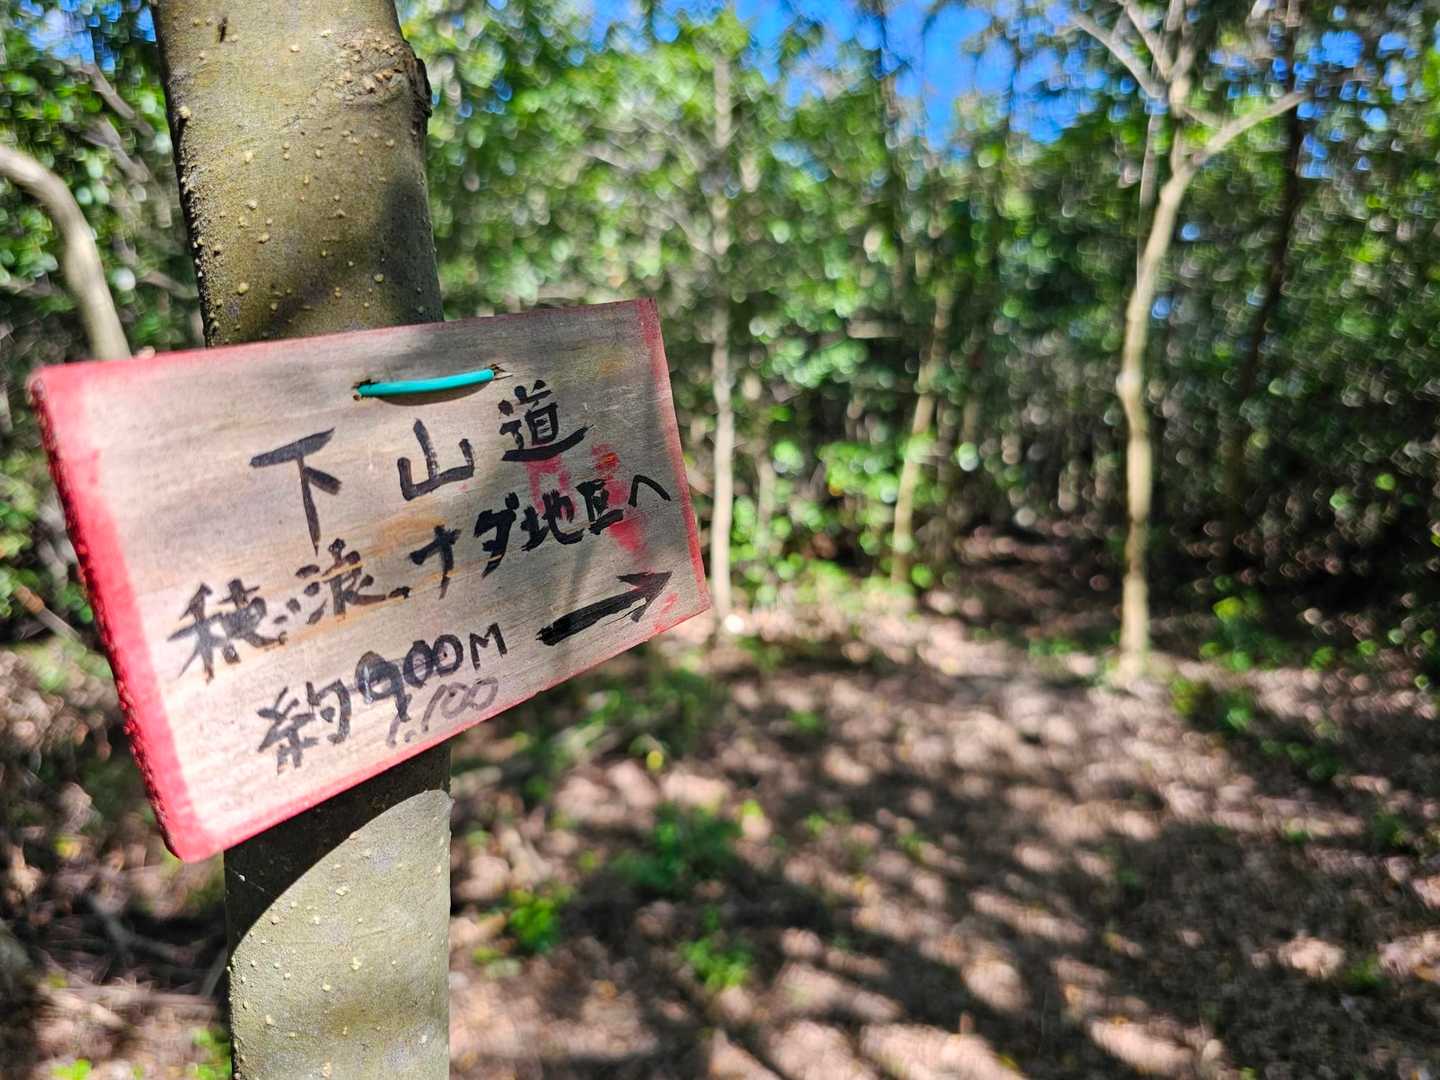 下山道
穂浪.ナダ地区へ
約900M
1.100